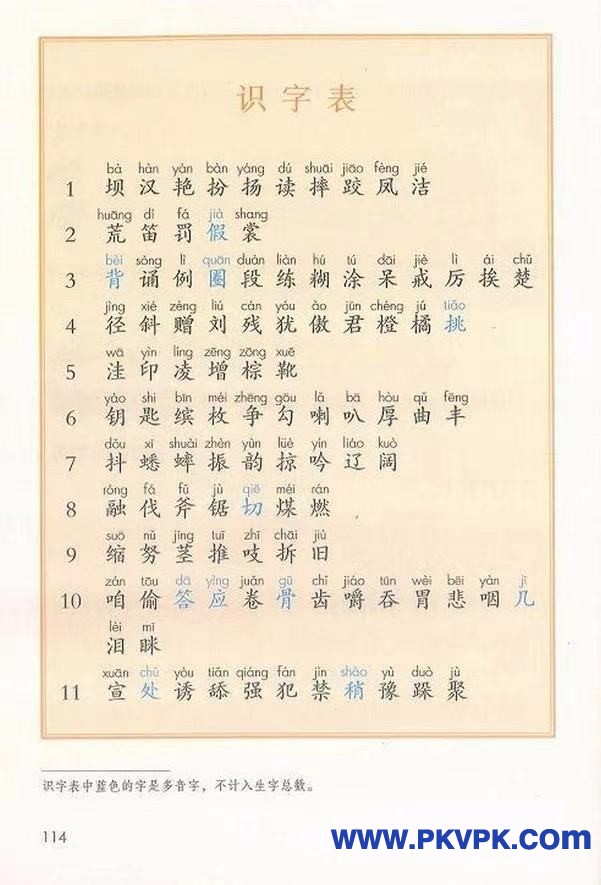 识字表
bà hàn yàn bàn yáng dú shuāi jiāo fèng jié
1 坝 汉 艳 扮 扬 读 摔 跤 凤 洁
huāng dí fá jià shang
2 荒 笛 罚 假 裳
bèi sòng lì quān duàn liàn hú tú dāi jiè lì ái chǔ
3 背 诵 例 圈 段 练 糊 涂 呆 戒 厉 挨 楚
jìng xié zèng liú cán yóu ào jūn chéng jú tiāo
4 径 斜 赠 刘 残 犹 傲 君 橙 橘 挑
wā yìn líng zēng zōng xuē
5 洼 印 凌 增 棕 靴
yào shi bīn méi zhēng gōu lǎ bā hòu qǔ fēng
6 钥 匙 缤 枚 争 勾 喇 叭 厚 曲 丰
dǒu xī shuài zhèn yùn lüè yín liáo kuò
7 抖 蟋 蟀 振 韵 掠 吟 辽 阔
róng fá fǔ jù qiē méi rán
8 融 伐 斧 锯 切 煤 燃
suō nǔ jīng tuī zhī chāi jiù
9 缩 努 茎 推 吱 拆 旧
zán tōu dā yìng juǎn gǔ chǐ jiáo tūn wèi bēi yàn jǐ
10 咱 偷 答 应 卷 骨 齿 嚼 吞 胃 悲 咽 几
lèi mī
泪 眯
xuān chǔ yòu tiǎn qiáng fàn jìn shào yù duò jù
11 宣 处 诱 舔 强 犯 禁 稍 豫 跺 聚
识字表中蓝色的字是多音字，不计入生字总数。
114
www.PKVPK.com